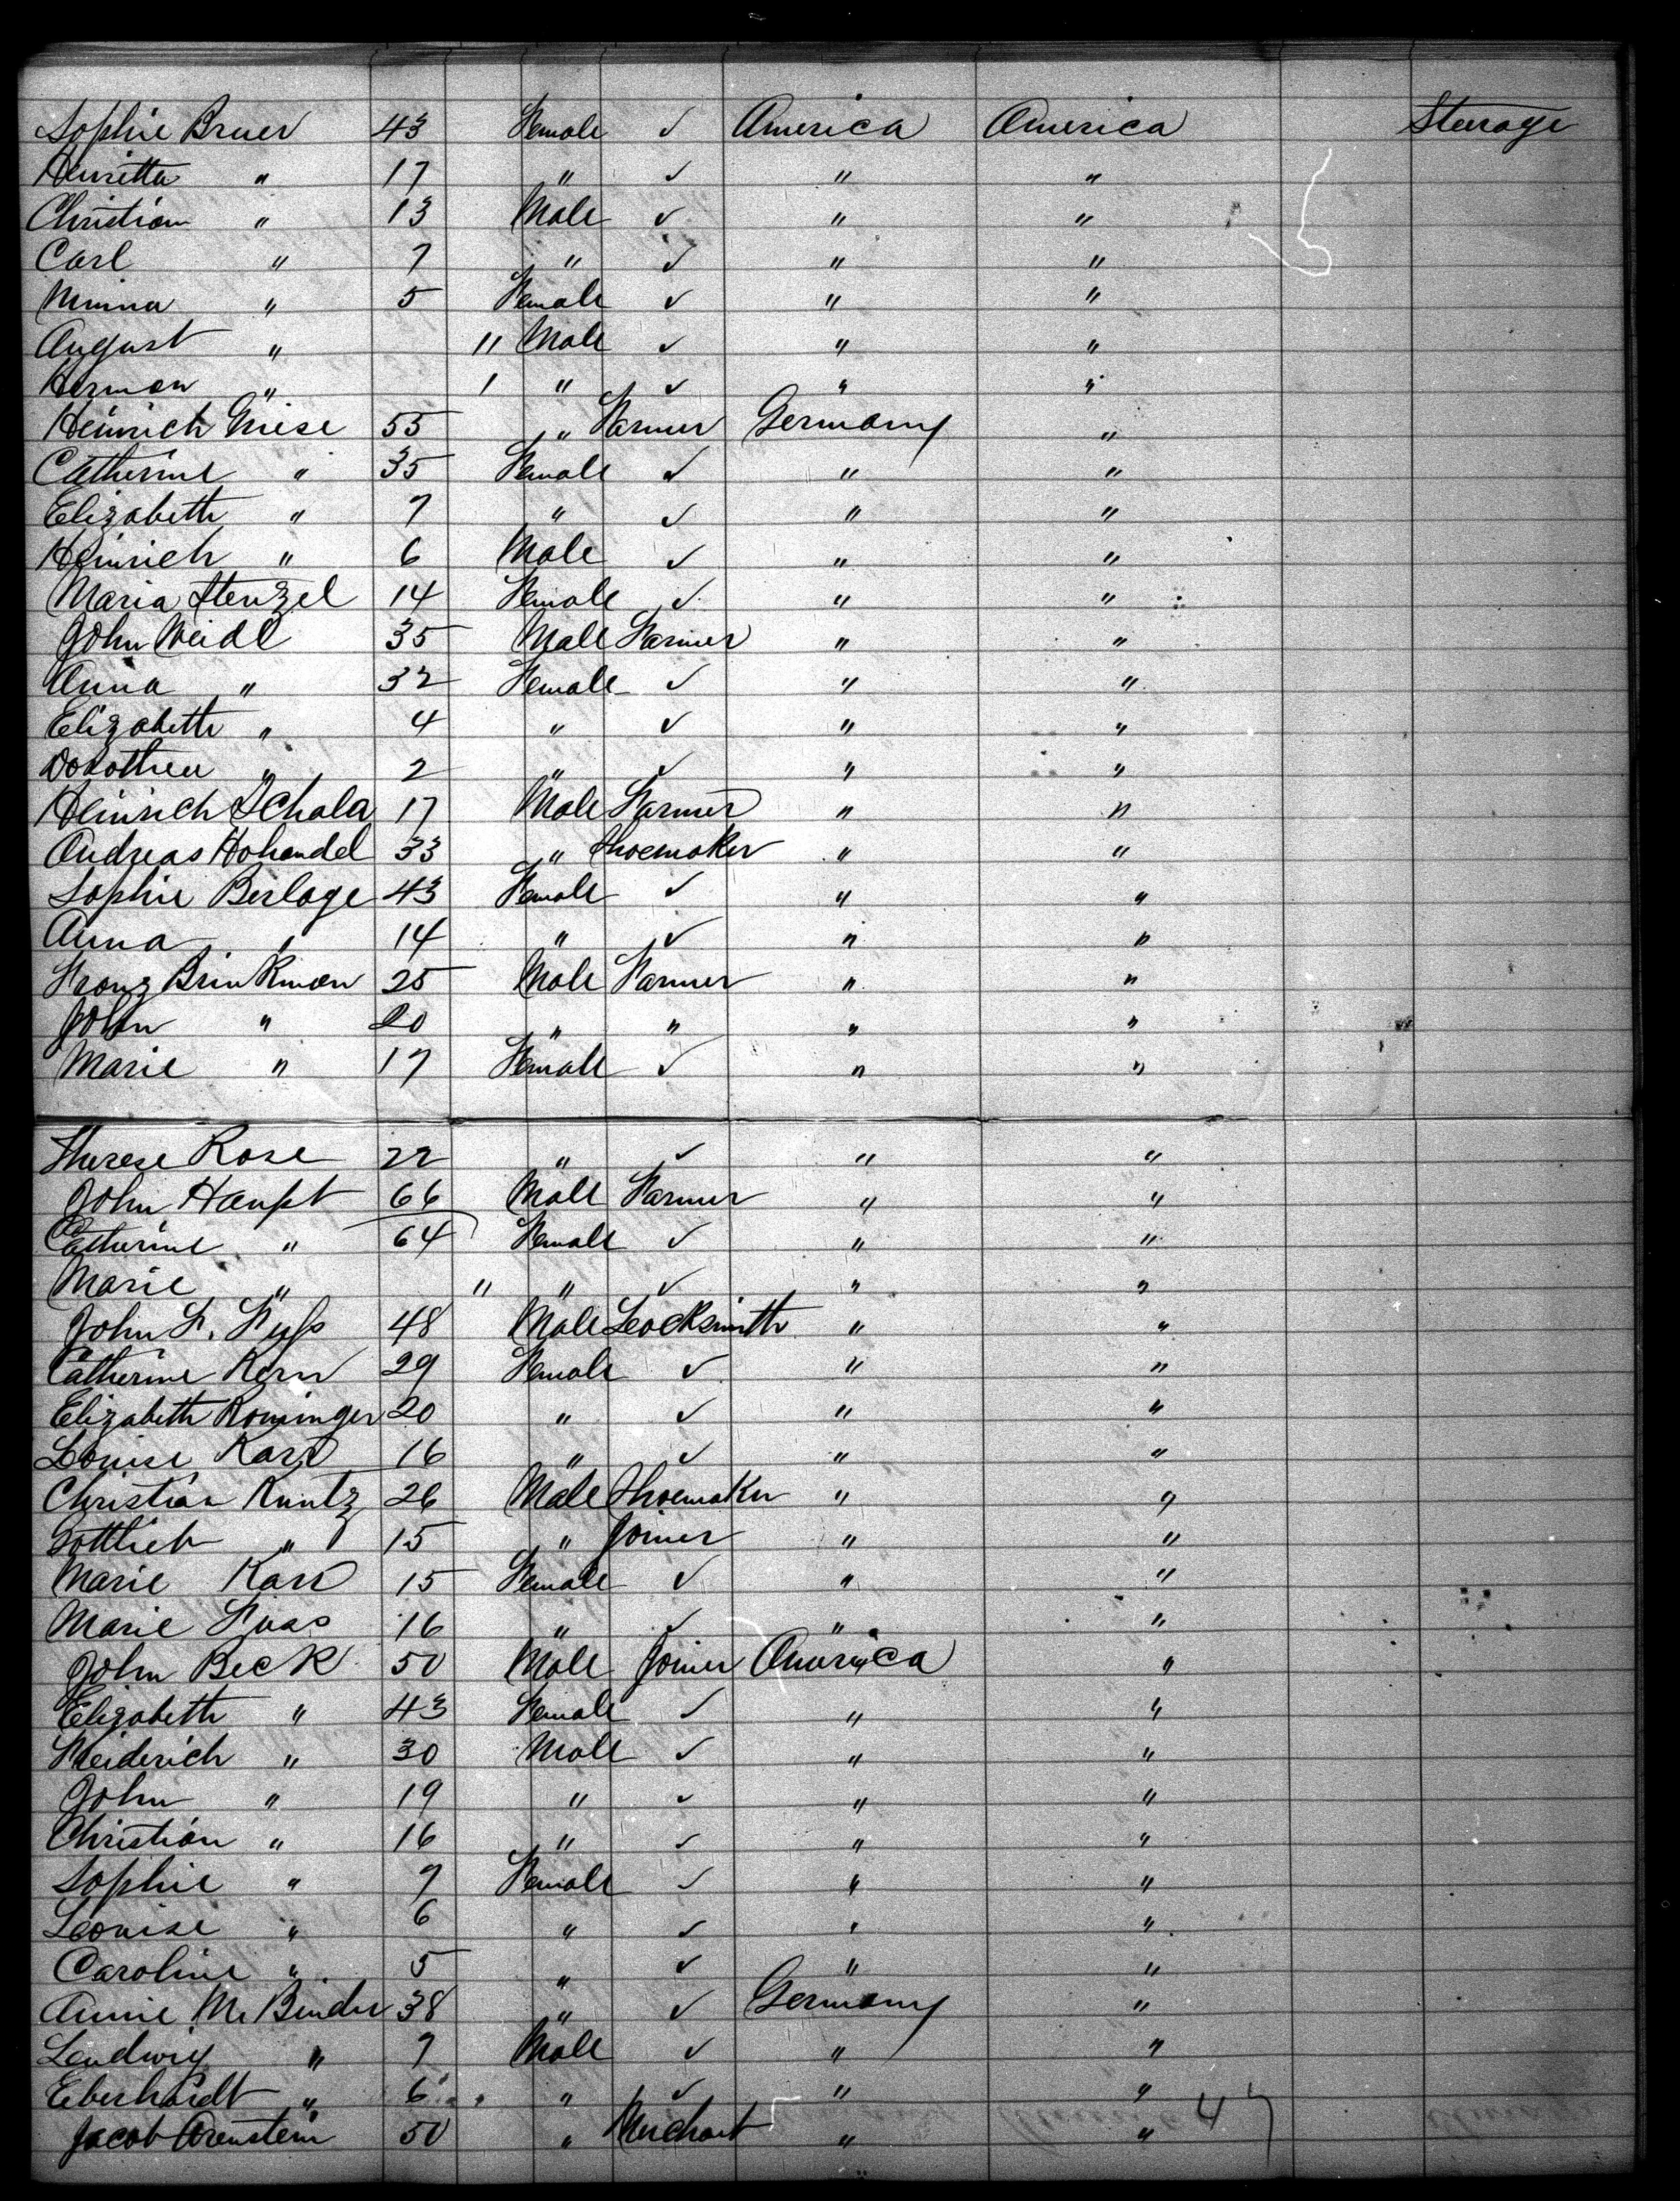 Sophie Bruer 43 Female ✓ America America Steerage
Henrietta " 17 " ✓ " "
Christian " 13 Male ✓ " "
Carl " 7 " ✓ " "
Minna " 5 Female ✓ " "
August " 11 Male ✓ " "
Herman " 1 " ✓ " "
Heinrich Giese 55 " Farmer Germany "
Catherine " 35 Female ✓ " "
Elizabeth " 7 " ✓ " "
Heinrich " 6 Male ✓ " "
Maria Stenzel 14 Female ✓ " "
John Weidl 35 Male Farmer " "
Anna " 32 Female ✓ " "
Elizabeth " 4 " ✓ " "
Dorothea " 2 " ✓ " "
Heinrich Schala 17 Male Farmer " "
Andreas Hohendel 33 " Shoemaker " "
Sophie Berlage 43 Female ✓ " "
Anna " 14 " ✓ " "
Franz Brinkman 25 Male Farmer " "
John " 20 " " " "
Marie " 17 Female ✓ " "
Therese Rose 22 " ✓ " "
John Haupt 66 Male Farmer " "
Catherine " 64 Female ✓ " "
Marie " 11 " ✓ " "
John F. 48 Male Locksmith " "
Catherine Kern 29 Female ✓ " "
Elizabeth Rominger 20 " ✓ " "
Louise 16 " ✓ " "
Christian Kuntz 26 Male Shoemaker " "
Gottlieb " 15 " Joiner " "
Marie 15 Female ✓ " "
Marie 16 " ✓ " "
John Beck 50 Male Joiner America "
Elizabeth " 43 Female ✓ " "
Freiderich " 30 Male ✓ " "
John " 19 " ✓ " "
Christian " 16 " ✓ " "
Sophie " 7 Female ✓ " "
Leouise " 6 " ✓ " "
Caroline " 5 " ✓ " "
Annie M. Binder 38 " ✓ Germany "
Ludwig " 7 Male ✓ " "
Eberhardt " 6 " ✓ " "
Jacob Arenstein 50 " Merchant " " 47